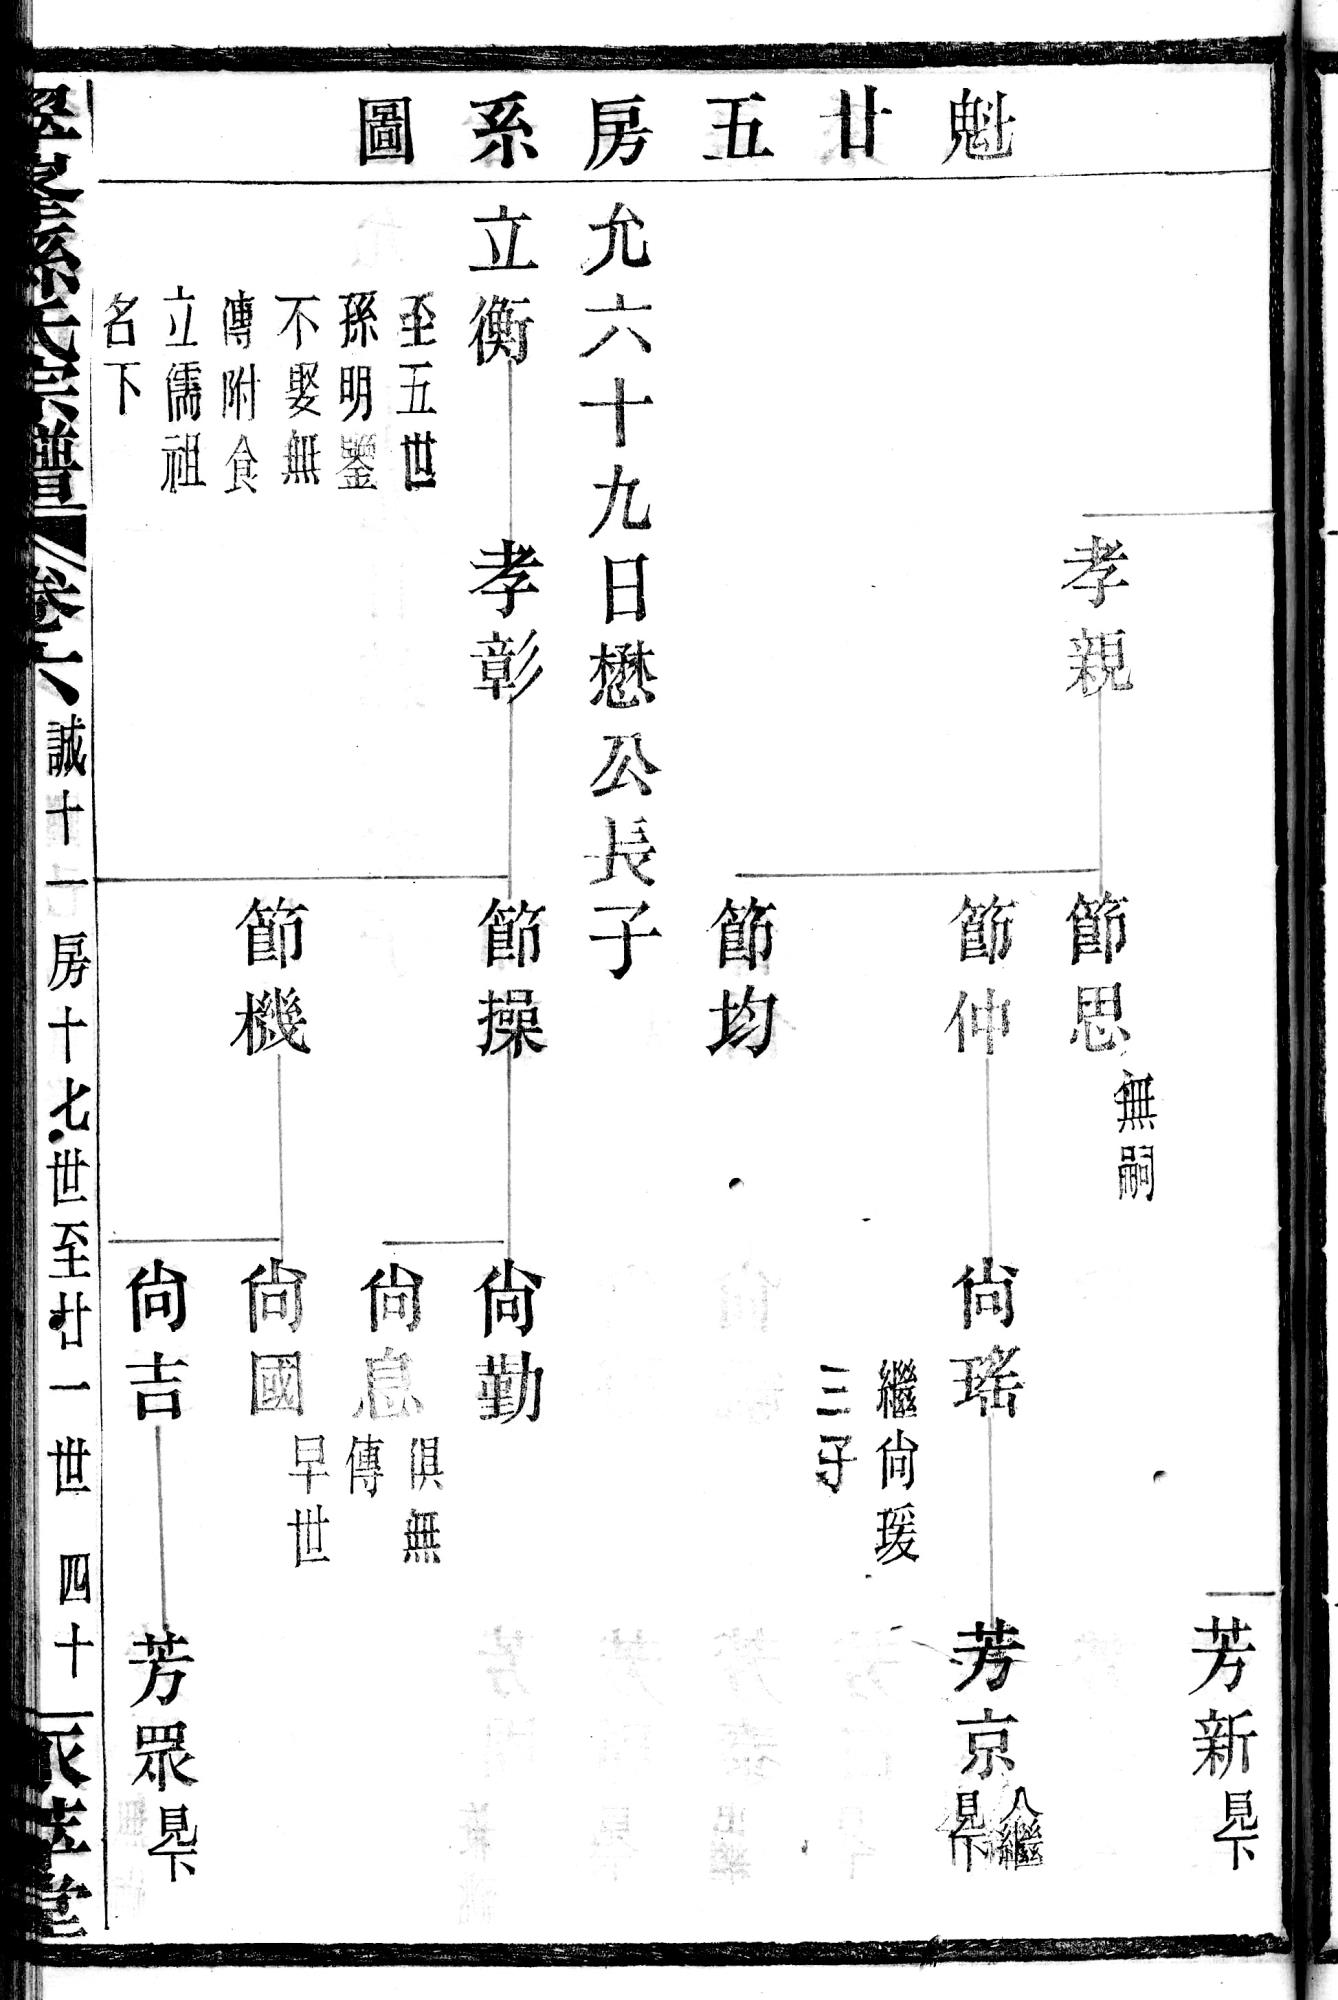 魁廿五房系圖
芳新見下
孝親
節思無嗣
節仲
尙瑤
繼尙瑗
三子
芳京入繼
見下
節均
允六十九日懋公長子
立衡
至五世
孫明鑒
不娶無
傳附食
立儒祖
名下
孝彰
節操
尙勤
尙息
俱無
傳
節機
尙國早世
尙吉
芳眾見下
孫氏宗譜 卷六 誠十一房十七世至廿一世 四十 萃堂